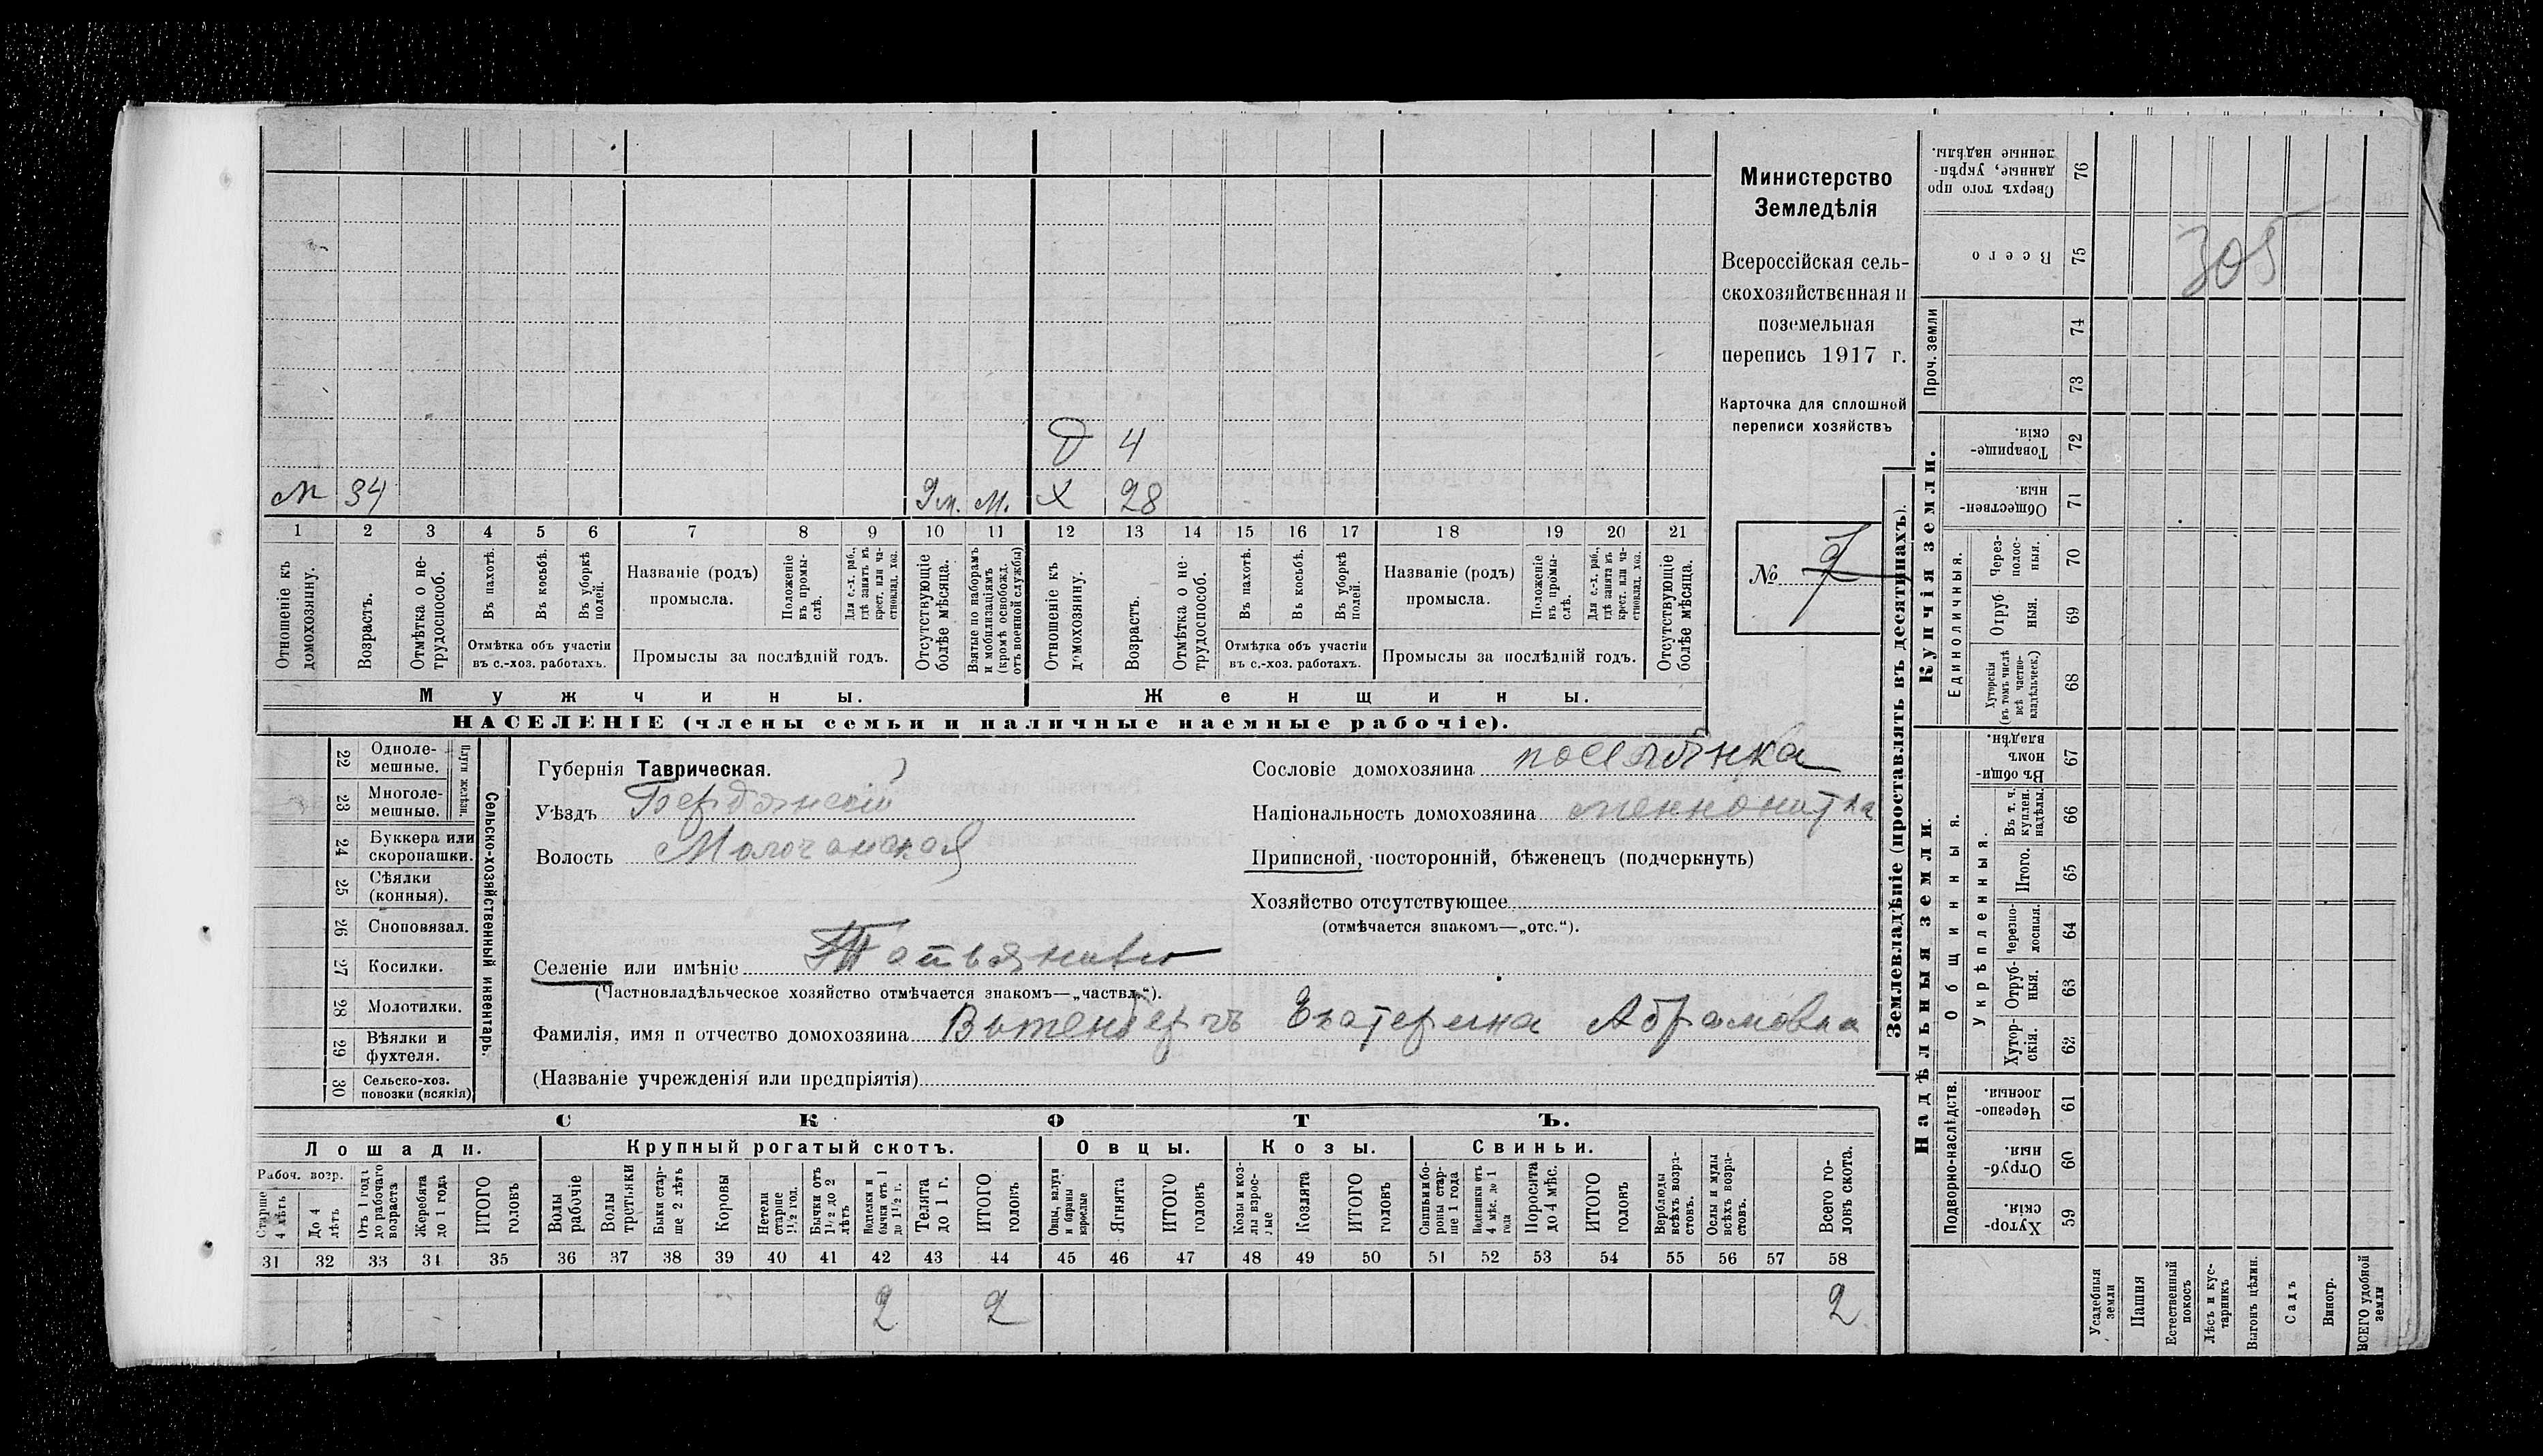 д 4
м 34 9м. М. х 28
1 2 3 4 5 6 7 8 9 10 11 12 13 14 15 16 17 18 19 20 21
Отношеніе къ домохозяину.
Возрастъ.
Отмѣтка о не-трудоспособ.
Въ пахотѣ.
Въ косьбѣ.
Въ уборкѣ полей.
Отмѣтка объ участіи
въ с.-хоз. работахъ.
Названіе (родъ)
промысла.
Положеніе въ промы-слѣ.
Для с.-х. раб., гдѣ занятъ въ крест. или ча-стновлад. хоз.
Промыслы за послѣдній годъ.
Отсутствующіе болѣе мѣсяца.
Взятые по наборамъ и мобилизаціямъ (кромѣ освобожд. отъ военной службы)
Отношеніе къ домохозяину.
Возрастъ.
Отмѣтка о не-трудоспособ.
Въ пахотѣ.
Въ косьбѣ.
Въ уборкѣ полей.
Отмѣтка объ участіи
въ с.-хоз. работахъ.
Названіе (родъ)
промысла.
Положеніе въ промы-слѣ.
Для с.-х. раб., гдѣ занята въ крест. или ча-стновлад. хоз.
Промыслы за послѣдній годъ.
Отсутствующіе болѣе мѣсяца.
Мужчины. Женщины.
НАСЕЛЕНІЕ (члены семьи и наличные наемные рабочіе).
Министерство
Земледѣлія
Всероссійская сель-
скохозяйственная и
поземельная
перепись 1917 г.
Карточка для сплошной
переписи хозяйствъ
№ 7
22 Одноле-мешные.
23 Многоле-мешные.
Плуги желѣзн.
24 Буккера или скоропашки.
25 Сѣялки (конныя).
26 Сноповязал.
27 Косилки.
28 Молотилки.
29 Вѣялки и фухтеля.
30 Сельско-хоз. повозки (всякія)
Сельско-хозяйственный инвентарь.
Губернія Таврическая.
Уѣздъ Бердянскій
Волость Молочанская
Селеніе или имѣніе
(Частновладѣльческое хозяйство отмѣчается знакомъ—„частвл.“).
Фамилія, имя и отчество домохозяина Екатерина Абрамовна
(Названіе учрежденія или предпріятія)
Сословіе домохозяина поселянка
Національность домохозяина меннонитка
Приписной, посторонній, бѣженецъ (подчеркнуть)
Хозяйство отсутствующее
(отмѣчается знакомъ—„отс.“).
СКОТЪ.
Лошади. Крупный рогатый скотъ. Овцы. Козы. Свиньи.
Рабоч. возр.
Старше 4 лѣтъ
До 4 лѣтъ
Отъ 1 года до рабочаго возраста
Жеребята до 1 года
ИТОГО головъ
Волы рабочіе
Волы третьяки
Быки стар-ше 2 лѣтъ
Коровы
Нетели старше 1½ год.
Бычки отъ 1½ до 2 лѣтъ
Нетельки и бычки отъ 1 до 1½ г.
Телята до 1 г.
ИТОГО головъ
Овцы, валухи и бараны взрослые
Ягнята
ИТОГО головъ
Козы и коз-лы взрос-лые
Козлята
ИТОГО головъ
Свиньи и бо-ровы стар-ше 1 года
Подсвинки отъ 4 мѣс. до 1 года
Поросята до 4 мѣс.
ИТОГО головъ
Верблюды всѣхъ возра-стовъ.
Ослы и мулы всѣхъ возра-стовъ.
Всего го-ловъ скота.
31 32 33 34 35 36 37 38 39 40 41 42 43 44 45 46 47 48 49 50 51 52 53 54 55 56 57 58
2 2 2
Землевладѣніе (проставлять въ десятинахъ).
Купчія земли.
Надѣльныя земли.
Сверхъ того про-данные, укрѣп-ленные надѣлы. 76
Всего 75
305
Проч. земли
74
73
Товарище-скія. 72
Обществен-ныя. 71
Единоличныя.
Через-полос-ныя. 70
Отруб-ныя. 69
Хуторскія (въ томъ числѣ всѣ частно-владѣльческ.) 68
Въ общи-номъ владѣн. 67
Общинныя.
Укрѣпленныя.
Въ т. ч. куплен. надѣлы. 66
Итого. 65
Черезпо-лосныя. 64
Отруб-ныя. 63
Хутор-скія. 62
Подворно-наслѣдств.
Черезпо-лосныя. 61
Отруб-ныя. 60
Хутор-скія. 59
Усадебныя земли
Пашня
Естественный покосъ
Лѣсъ и кус-тарникъ
Выгонъ цѣлин.
Садъ
Виногр.
ВСЕГО удобной земли